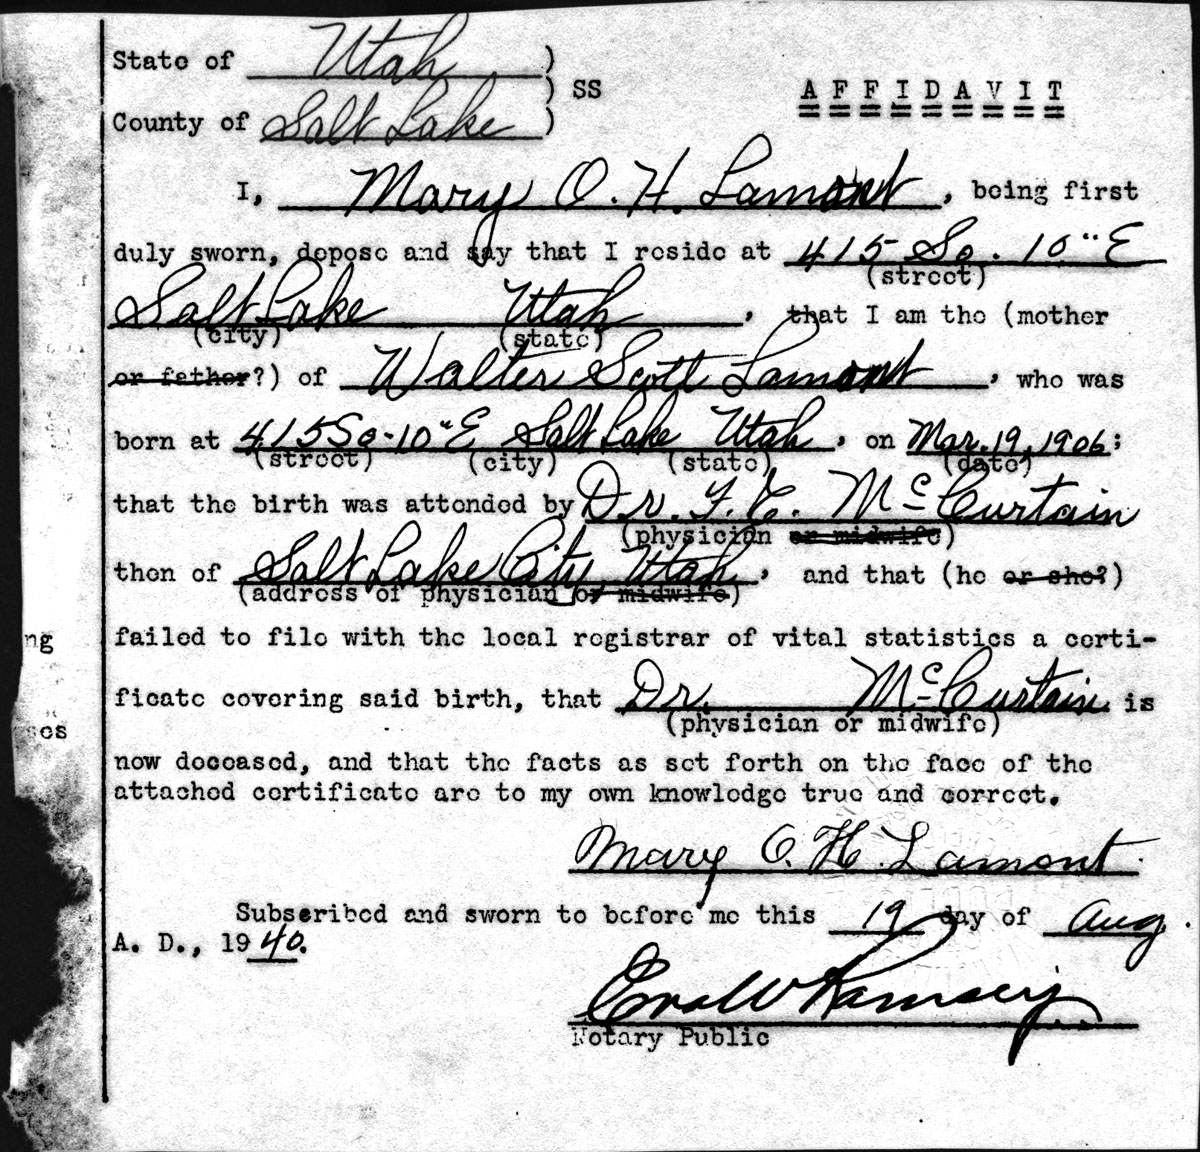 State of Utah )
) SS AFFIDAVIT
County of Salt Lake )
I, Mary O. H. Lamont, being first
duly sworn, depose and say that I reside at 415 So. 10" E
(street)
Salt Lake Utah, that I am the (mother
(city) (state)
or father?) of Walter Scott Lamont, who was
born at 415 So-10"E Salt Lake Utah, on Mar. 19, 1906;
(street) (city) (state) (date)
that the birth was attended by Dr. F. C. McCurtain
(physician or midwife)
then of Salt Lake City, Utah, and that (he or she?)
(address of physician or midwife)
failed to file with the local registrar of vital statistics a certi-
ng
ficate covering said birth, that Dr. McCurtain is
(physician or midwife)
now deceased, and that the facts as set forth on the face of the
attached certificate are to my own knowledge true and correct.
Mary O. H. Lamont.
Subscribed and sworn to before me this 19 day of Aug.
A. D., 1940.
Ramsey
Notary Public